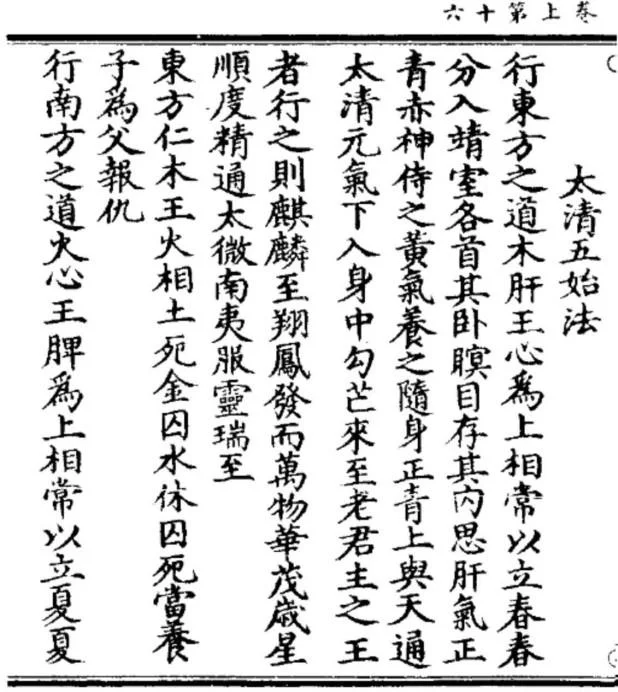 卷上第十六
太清五始法
行東方之道木肝王心爲上相常以立春春
分入靖室各首其卧瞑目存其內思肝氣正
青赤神侍之黃氣養之隨身正青上與天通
太清元氣下入身中勾芒來至老君主之王
者行之則麒麟至翔鳳發而萬物華茂歲星
順度精通太微南夷服靈瑞至
東方仁木王火相土死金囚水休囚死當養
子爲父報仇
行南方之道火心王脾爲上相常以立夏夏